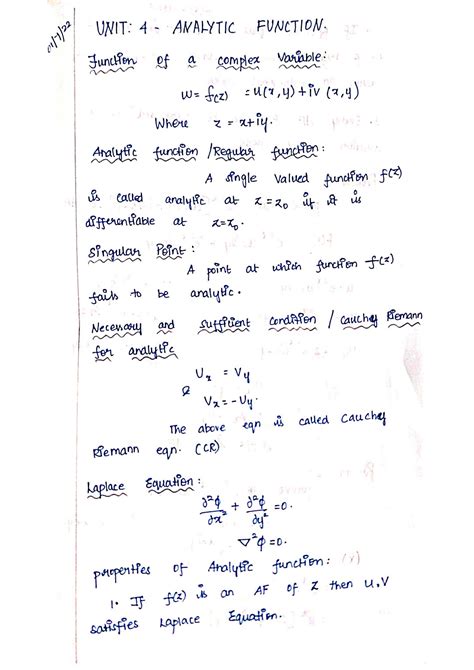 UNIT: 4 - ANALYTIC FUNCTION.
Function of a complex Variable:
w = f(z) = u(x,y) + iv (x,y)
Where z = x+iy.
Analytic function / Regular function:
A single Valued function f(z)
is called analytic at z = z₀ if it is
differentiable at z=z₀.
Singular Point:
A point at which function f(z)
fails to be analytic.
Necessary and Sufficient condition / Cauchy Riemann
for analytic
Uₓ = Vy
&
Vₓ = -Uy.
The above eqn is called Cauchy
Riemann eqn. (CR)
Laplace Equation:
∂²ϕ/∂x² + ∂²ϕ/∂y² =0.
∇²ϕ =0.
properties of Analytic function:
1. If f(z) is an AF of z then u,v
satisfies Laplace Equation.